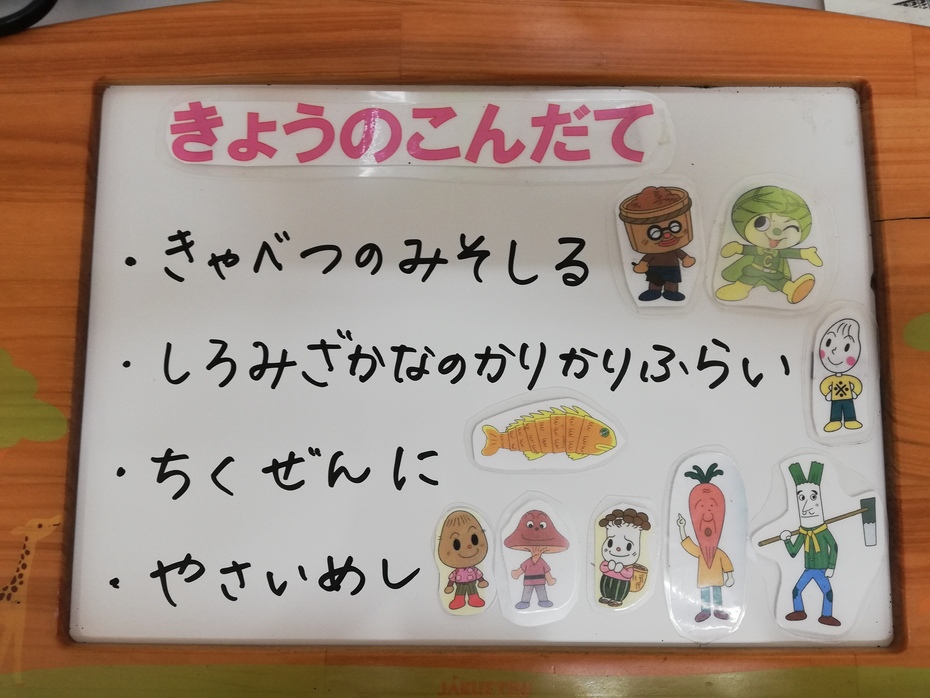 きょうのこんだて
・きゃべつのみそしる
・しろみざかなのかりかりふらい
・ちくぜんに
・やさいめし